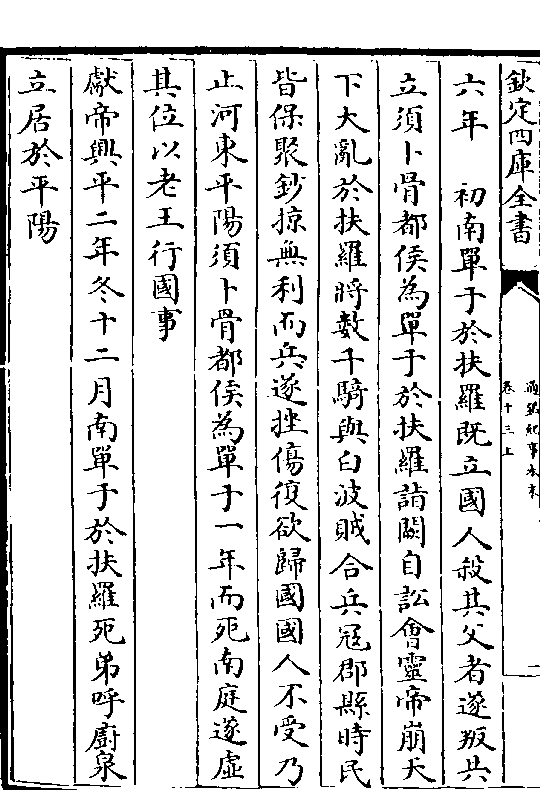 欽定四庫全書
通鑑紀事本末
卷十三上
二
六年　初南單于於扶羅既立國人殺其父者遂叛共
立須卜骨都侯為單于於扶羅詣闕自訟會靈帝崩天
下大亂於扶羅將數千騎與白波賊合兵冦郡縣時民
皆保聚鈔掠無利而兵遂挫傷復欲歸國國人不受乃
止河東平陽須卜骨都侯為單于一年而死南庭遂虛
其位以老王行國事
獻帝興平二年冬十二月南單于於扶羅死弟呼廚泉
立居於平陽